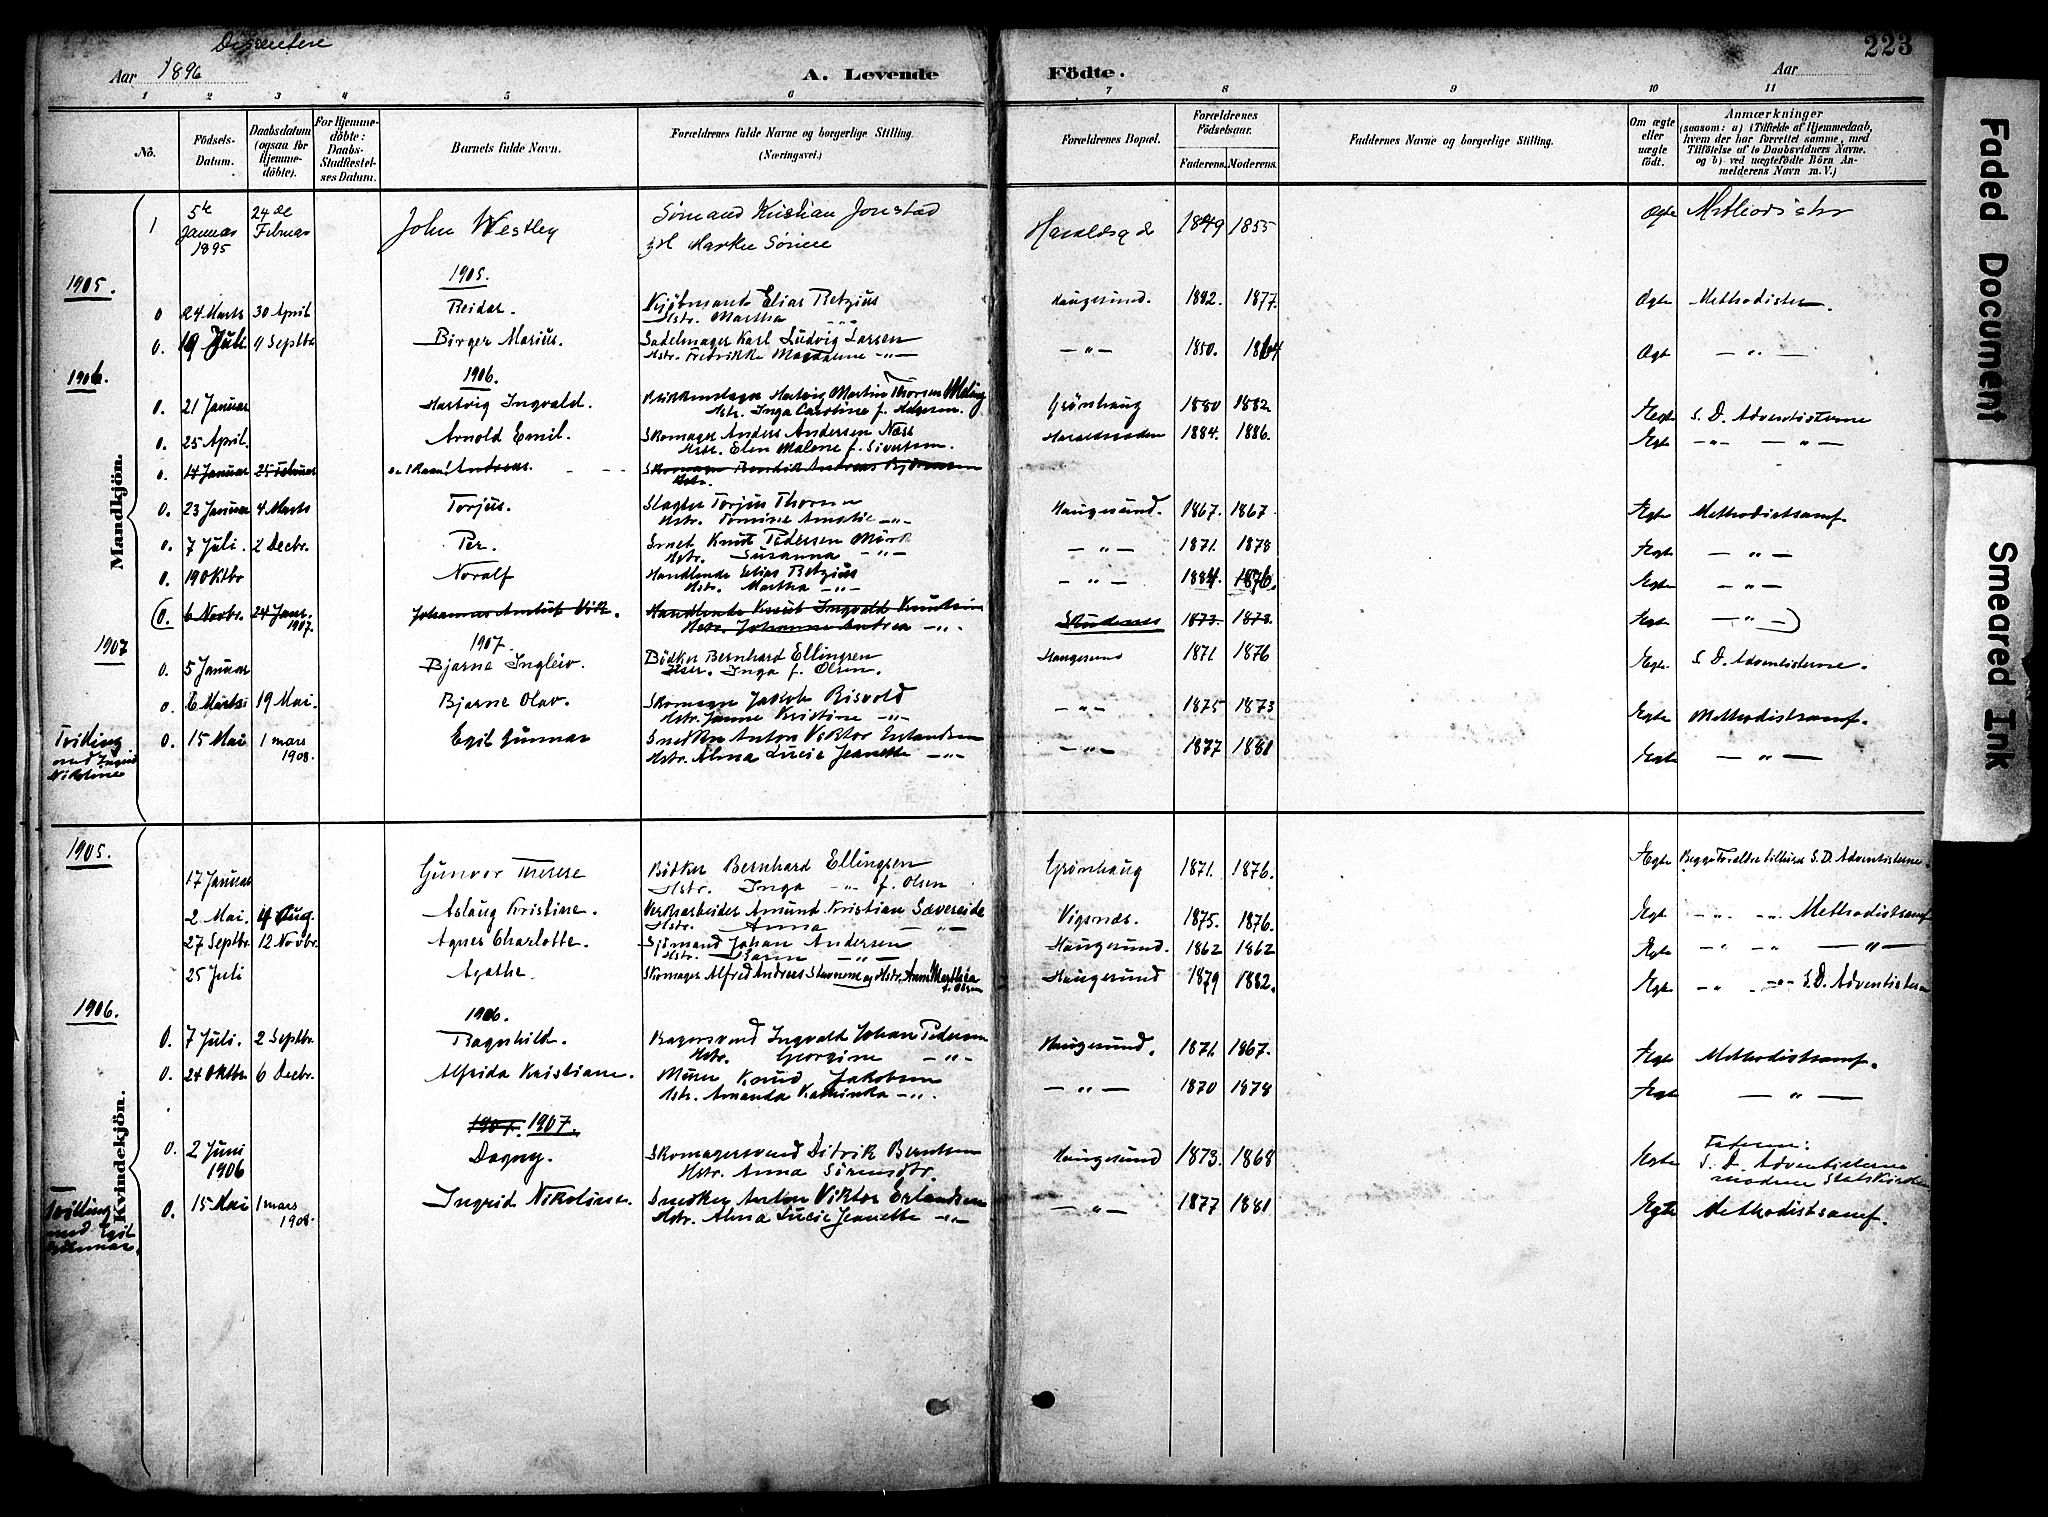 Dissentere
223
Aar 1896
A. Levende
Födte.
Aar
1 2 3 4 5 6 7 8 9 10 11
No.
Födsels-Datum.
Daabsdatum (ogsaa for Hjemme-döbte).
For Hjemme-döbte: Daabs-Stadfæstel-ses Datum.
Barnets fulde Navn.
Forældrenes fulde Navne og borgerlige Stilling. (Næringsvei.)
Forældrenes Bopæl.
Forældrenes Födselsaar. Faderens. Moderens.
Faddernes Navne og borgerlige Stilling.
Om ægte eller uægte födt.
Anmærkninger
(saasom: a) i Tilfælde af Hjemmedaab,
hvem der har forrettet samme, med
Tilföielse af to Daabsvidners Navne,
og b) ved uægtefödte Börn An-
melderens Navn m. V.)
Mandkjön.
1 5te Januar 1895 24de Februar John Westley Sömand Kristian Jonstad Haraldsgde 1849 1855 Ægte Methodister
1905.
1905.
0 24 Marts 30 April Reidar. Kjöbmand Elias Retzius Haugesund. 1882. 1877. Ægte Methodister.
Hstr. Martha — " —
0. 19 Juli 9 Septbr Birger Marius. Sadelmager Karl Ludvig Larsen — " — 1850. 1864 Ægt — " —
Hstr. Fredrikke Magdalene — " —
1906.
1906.
0. 21 Januar Hartvig Ingvald. Hartvig Martin Thorsen Meling Grönhaug 1880 1882. Ægte S. D. Adventisterne
Hstr. Inga Caroline f.
0. 25 April. Arnold Emil. Skomager Anders Andersen Næss 1884. 1886. Ægt — " — — " —
Hstr. Elen Malene f. Sivertsen.
0. 14 Januar 25 Februar Andreas. Skomager Bendik Andreas
Hstr.
0. 23 Januar 4 Marts Torjus. Slagter Torjus Haugesund. 1867. 1867. Ægte Methodistsamf.
Hstr. Tomine Amalie — " —
0. 7 Juli. 2 Decbr. Per. Smed Knut Pedersen Mörk — " — 1871. 1878 Ægte — " —
Hstr. Susanna — " —
0. 19 Oktbr Noralf Handlende Elias Retzius — " — 1884. 1876. Ægte — " —
Hstr. Martha — " —
(0. 6 Novbr. 24 Janr. 1907. Johannes Vik. Handlende Knut Ingvald Knutsen Skudenes 1873. 1873. Ægte — " —)
Hstr. Johanne Andrea — " —
1907
1907.
0. 5 Januar Bjarne Ingleiv. Bödker Bernhard Ellingsen Haugesund 1871 1876 Ægte S. D. Adventisterne.
Hstr. Inga f. Olsen.
0. 6 Marts 19 Mai. Bjarne Olav. Skomager Jakob Risvold — " — 1875 1873 Ægte Methodistsamf.
Hstr. Janne Kristine — " —
Tvilling med Ingrid Nikoline
0. 15 Mai 1 mars 1908. Egil Gunnar Snedker Anton Viktor Erlandsen — " — 1877 1881 Ægte — " —
Hstr. Alma Lucie Jeanette — " —
Kvindekjön.
1905.
17 Januar Gunvor Therese Bödker Bernhard Ellingsen Grönhaug 1871. 1876. Ægte Begge Forældre tilhöre S. D. Adventisterne.
Hstr. Inga — " — f. Olsen
2 Mai. 4 Aug. Aslaug Kristine. Verksarbeider Amund Kristian Sævereide Vigsnæs. 1875. 1876. Ægt — " — — " — Methodistsamf
Hstr. Anna — " —
27 Septbr 12 Novbr. Agnes Charlotte. Sjömand Johan Andersen Haugesund. 1862 1862 Ægt — " — — " — — " —
Hstr. Karen — " —
25 Juli Agathe. Skomager Alfred Andreas Stavnem og Hstr. Anne Marthea f. Olsen Haugesund 1879 1882. Ægt — " — — " — S. D. Adventistern
1906.
1906.
0. 7 Juli. 2 Septbr Ragnhild. Bagersvend Ingvald Johan Pedersen Haugesund. 1871. 1867. Ægte Methodistsamf.
Hstr. Georgine — " —
0. 24 Oktbr 6 Decbr. Alfrida Kristiane. Murer Knud Jakobsen — " — 1870 1878 Ægte — " —
Hstr. Amanda Kathinka — " —
1907. 1907.
0. 2 Juni 1906 Dagny. Skomagersvend Didrik Berntsen Haugesund 1873. 1868 Ægte Faderen: S. D. Adventisterne
Hstr. Anna Sörensdtr. moderen Statskirken
Tvilling med Egil Gunnar.
0. 15 Mai 1 mars 1908. Ingrid Nikoline. Snedker Anton Viktor Erlandsen — " — 1877 1881 Ægte Methodistsamf.
Hstr. Alma Lucie Jeanette — " —
Faded Document
Smeared Ink